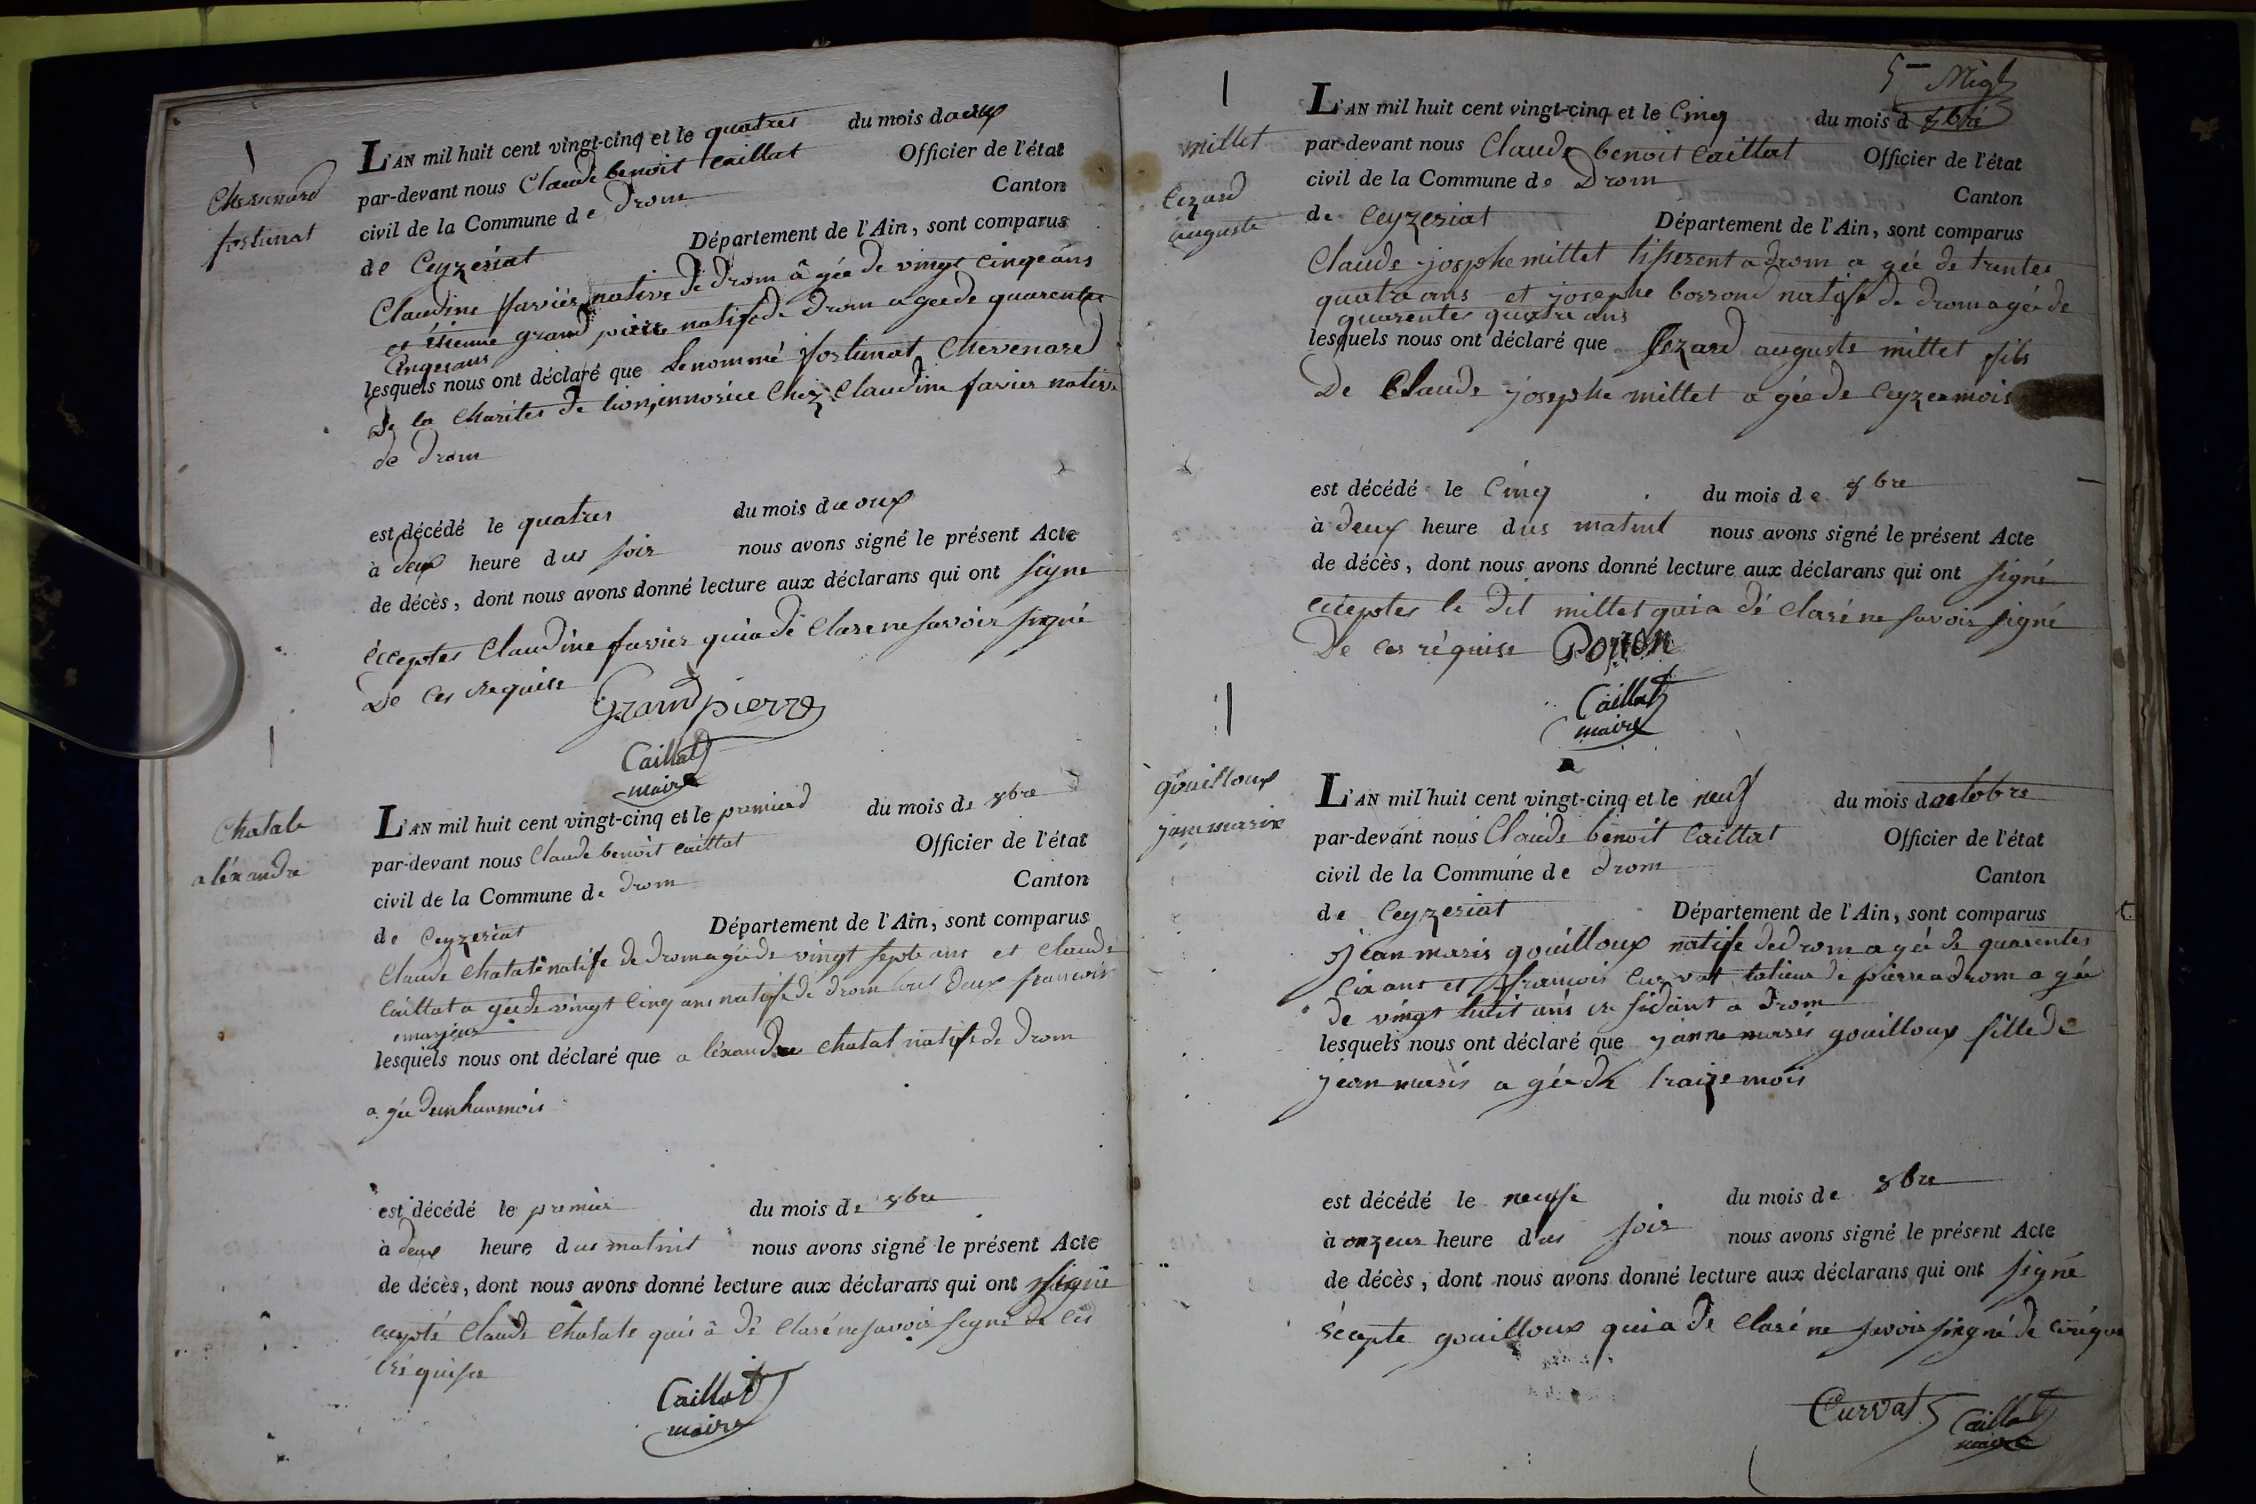 Chervenard
fortunat
L'AN mil huit cent vingt-cinq et le quatres du mois d aoux
par-devant nous Claude benoit Caillat Officier de l'état
civil de la Commune de drom Canton
de Ceyzeriat Département de l'Ain, sont comparus
Claudine favier native de drom âgée de vingt cinqe ans
et étienne grand pierre natife de drom agee de quarentes
Cinqe ans
lesquels nous ont déclaré que le nommé fortunat Chervenard
de la Charites de lion, ennorice Chez Claudine favier native
de drom
est décédé le quatres du mois d aoux
à deux heure dus soir nous avons signé le présent Acte
de décès, dont nous avons donné lecture aux déclarans qui ont signe
éccepter Claudine favier qui a dé Clare ne savoir signé
De Ces requise
Grandpierre
Caillat
maire
Chatale
aléxandre
L'AN mil huit cent vingt-cinq et le premierd du mois de 8bre
par-devant nous Claude benoit Caillat Officier de l'état
civil de la Commune de drom Canton
de Ceyzeriat Département de l'Ain, sont comparus
Claude Chatale natife de drom agée de vingt septe ans et Claude
Caillat a gée de vingt Cinq ans natife de drom tout deux francois
emarjeur
lesquels nous ont déclaré que a léxandre Chatal natife de drom
a gée dun han mois
est décédé le premier du mois de 8bre
à deux heure dus matint nous avons signé le présent Acte
de décès, dont nous avons donné lecture aux déclarans qui ont signé
Claude Chatale qui â dé Claré ne savoir signé de Ces
réquise
Caillat
maire
5
millet
Cezard
auguste
L'AN mil huit cent vingt-cinq et le Cinq du mois d 8bre
par-devant nous Claude benoit Caillat Officier de l'état
civil de la Commune de Drom Canton
de Ceyzeriat Département de l'Ain, sont comparus
Claude josphe millet tisserent a drom a gée de trentes
quatre ans et josephe borrond natife de drom agée de
quarentes quatre ans
lesquels nous ont déclaré que Cezard auguste millet fils
De Claude josephe millet a gée de Ceyze mois
est décédé le Cinq du mois de 8bre
à deux heure dus matint nous avons signé le présent Acte
de décès, dont nous avons donné lecture aux déclarans qui ont signé
éccepter le dit millet qui a dé Claré ne savoir signé
De Ces réquise
Caillat
maire
gouilloux
janemarie
L'AN mil huit cent vingt-cinq et le neuf du mois d octobre
par-devant nous Claude benoit Caillat Officier de l'état
civil de la Commune de drom Canton
de Ceyzeriat Département de l'Ain, sont comparus
jean marie gouilloux natife de drom a gée de quarentes
Cix ans et francois Curvat talieur de pierre a drom a gée
de vingt huit ans résidant a drom
lesquels nous ont déclaré que janne marie gouilloux fille de
jean marie a gée de traize mois
est décédé le neufe du mois de 8bre
à onzeur heure dus soir nous avons signé le présent Acte
de décès, dont nous avons donné lecture aux déclarans qui ont signé
écepte gouilloux qui a dé Claré ne savoir singné de
Curvat Caillat
maire